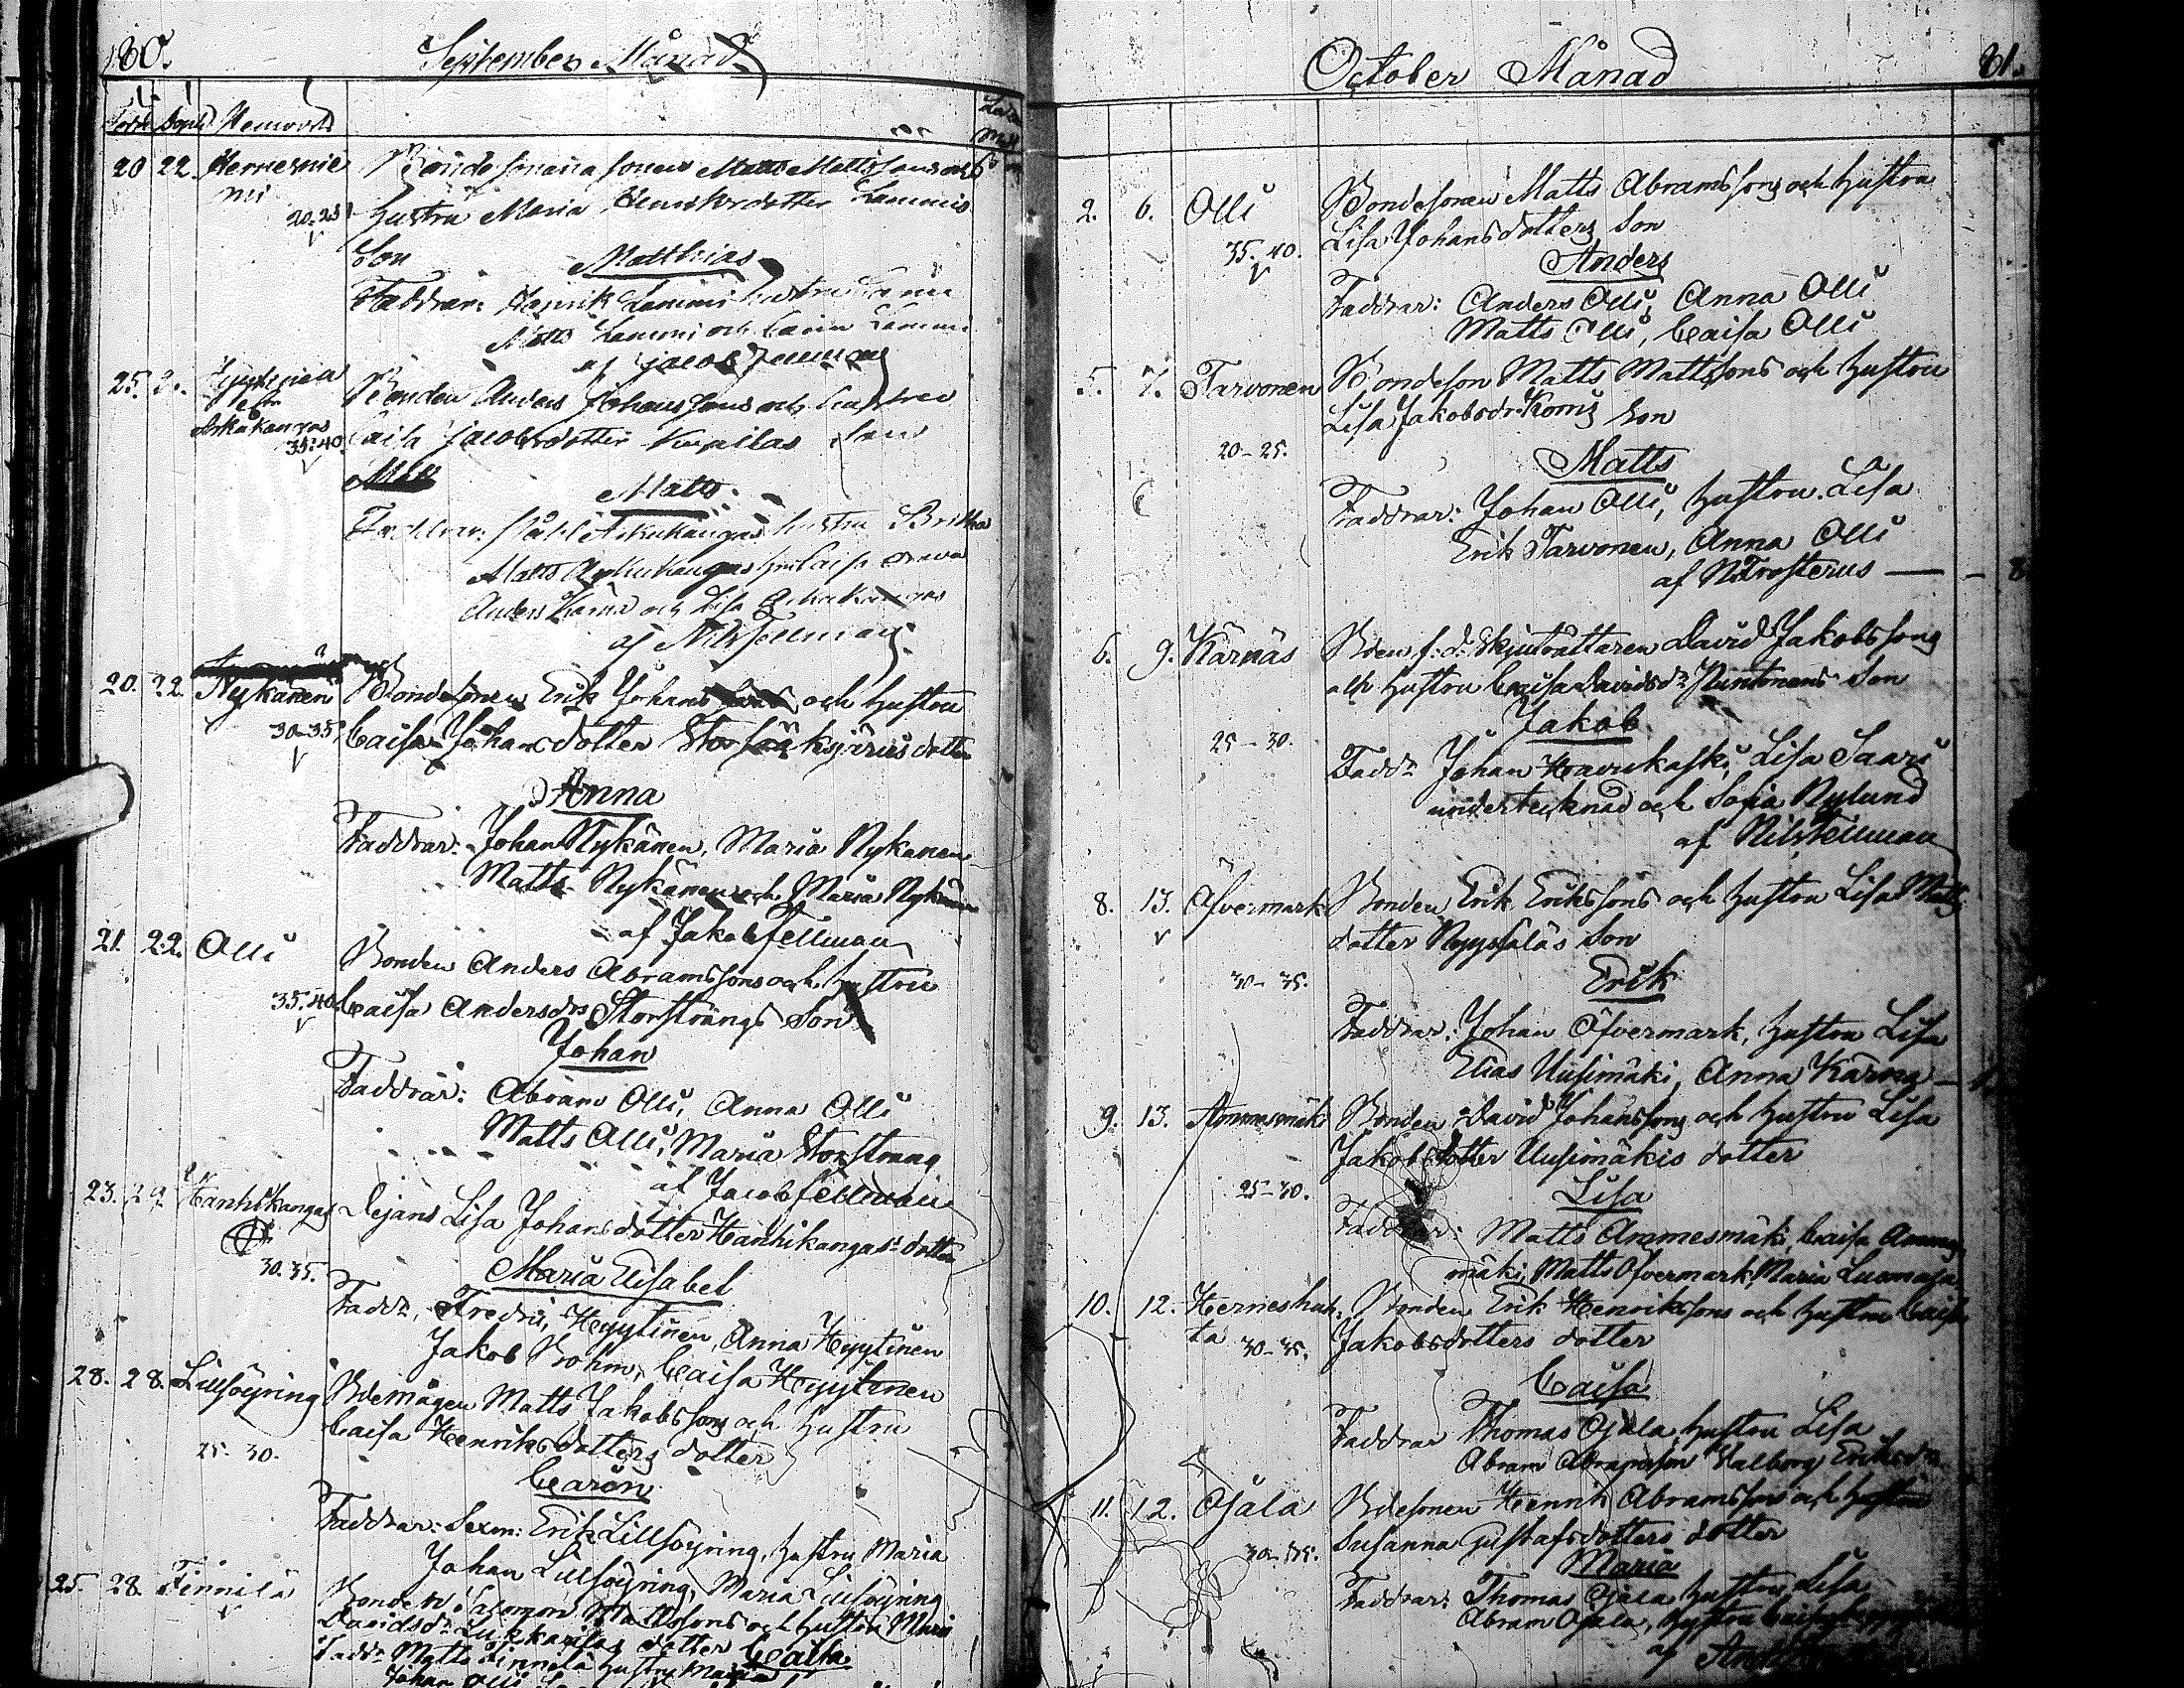 180.
September Månad
Född Döpt Hemvord
20 22. Hernesnie
mi
Bondesmåga sonen Matts Mattssons och
hustru Maria Henriksdotter Lammis
Son
Matthias
Faddrar: Henrik Lammi hustru
Matts Lammi och Lammi
af Jacob Fellman
25.
Askukangas
35.40.
Bonden Anders Johanssons och hustru
Caisa Jacobsdotter Son
Matts
Faddrar: Påhl Askukangas hustru Britha
Matts Askukangas Caisa
Anders Kärnä och Lisa Askukangas
af Nils Fellman
20. 22. Nykänen
30-35
Bondesonen Erik Johans och hustru
Caisa Johansdotter dotter
Anna
Faddrar: Johan Nykänen, Maria Nykänen
Matts Nykänen och Maria Nykänen
af Jakob Fellman
21. 22. Olli
35.40.
Bonden Anders Abramssons och hustru
Caisa Andersdrs Storsträngs Son
Johan
Faddrar: Abram Olli, Anna Olli
Matts Olli, Maria Storsträng
af Jacob Fellman
23. 29. Hanhikangas
30.35.
Pejans Lisa Johansdotter Hanhikangas dotter
Maria Elisabet
Faddr, Fredric Hyytinen, Anna Hyytinen
Jakob Bohm, Caisa Hyytinen
28. 28. Lillsöyring
25. 30.
Bdemågen Matts Jakobssons och hustru
Caisa Henriksdotters dotter
Carin
Faddrar: Sexm: Erik Lillsöyring, hustru Maria
Johan Lillsöyring, Maria Lillsöyring
25. 28. Finnilä
Bonden Salomon Mattssons och hustru Maria
Davidsdr dotter Caisa
Faddr Matts Finnilä hustru Maria
Johan Olli
October Månad
81.
2. 6. Olli
35. 40.
Bondesonen Matts Abramssons och hustru
Lisa Johansdotters Son
Anders
Faddrar: Anders Olli, Anna Olli
Matts Olli, Caisa Olli
5. 7. Tarvonen
20-25.
Bondeson Matts Mattssons och hustru
Lisa Jakobsdr. Korris Son
Matts
Faddrar: Johan Olli, hustru Lisa
Erik Tarvonen, Anna Olli
af N Frosterus — – 8
6. 9. Kärnäs
25-30.
Bden f. d. Skjuträttaren David Jakobssons
och hustru Caisa Davidsdr Puntonens Son
Jakob
Faddr Johan Haurukaski, Lisa Saari
undertecknad och Sofia Nylund
af Nils Fellman
8. 13. Öfvermark
30-35.
Bonden Erik Erikssons och hustru Lisa Matts
dotter Nyyssäläs Son
Erik
Faddrar: Johan Öfvermark, hustru Lisa
Elias Uusimäki, Anna Kärnä
9. 13. Ammesmäki
25-30.
Bonden David Johanssons och hustru Lisa
Jakobsdotter Uusimäkis dotter
Lisa
Faddrar: Matts Ammesmäki, Caisa Ammes
mäki, Matts Öfvermark, Maria Luomala
10. 12. Herneshuh
ta 30-35.
Bonden Erik Henrikssons och hustru Caisa
Jakobsdotters dotter
Caisa
Faddrar Thomas Ojala, hustru Lisa
Abram Abramsson Walborg Eriksdr
11. 12. Ojala
30-35.
Bdesonen Henrik Abramssons och hustru
Susanna Gustafsdotters dotter
Maria
Faddrar: Thomas Ojala hustru Lisa
Abram Ojala, hustru Caisa
af